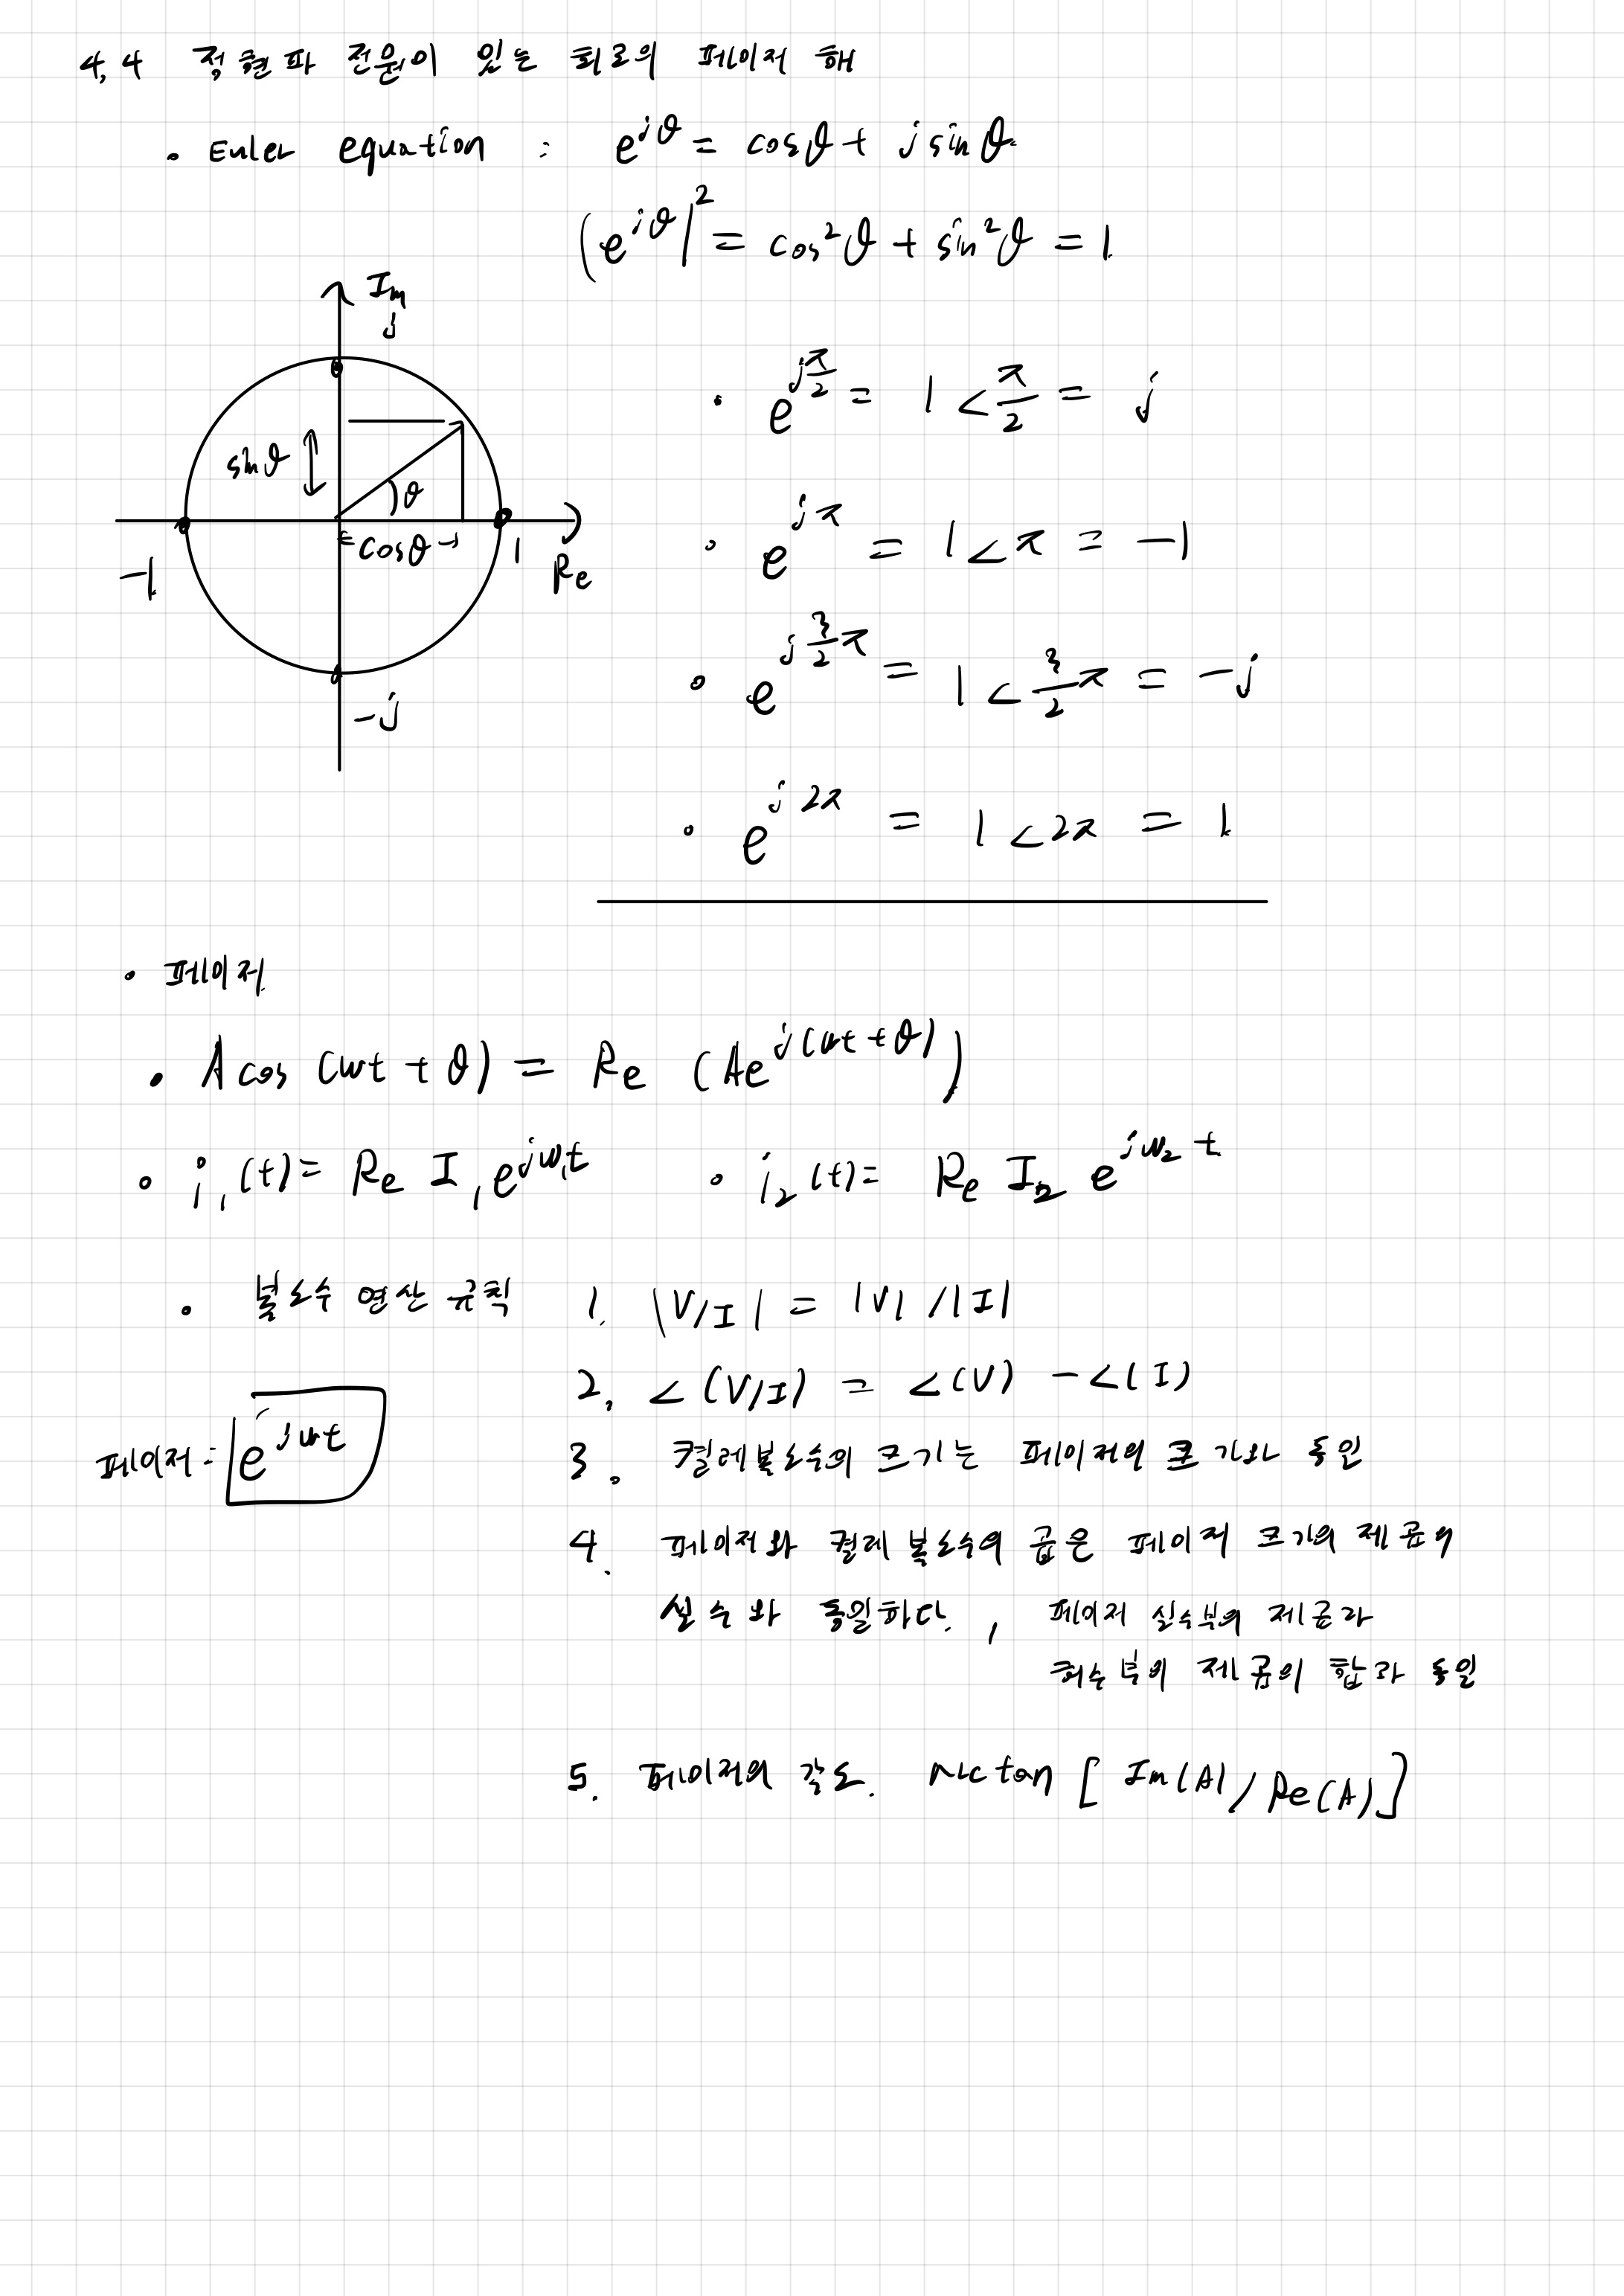 4.4 정현파 전원이 있는 회로의 페이저 해
• Euler equation : e^{jθ} = cosθ + j sinθ
|e^{jθ}|^2 = cos^2θ + sin^2θ = 1
Im
j
• e^{jπ/2} = 1∠π/2 = j
sinθ
θ
cosθ
1
-1
Re
• e^{jπ} = 1∠π = -1
• e^{j3/2π} = 1∠3/2π = -j
-j
• e^{j2π} = 1∠2π = 1
• 페이저
• A cos(wt + θ) = Re (Ae^{j(wt+θ)})
• i₁(t) = Re I₁e^{jw₁t} • i₂(t) = Re I₂ e^{jw₂t}
• 복소수 연산 규칙 1. |V/I| = |V| / |I|
2. ∠(V/I) = ∠(V) - ∠(I)
페이저 = e^{jwt}
3. 컬레복소수의 크기는 페이저의 크기와 동일
4. 페이저와 컬레 복소수의 곱은 페이저 크기의 제곱의
실수와 동일하다. , 페이저 실수부의 제곱과
허수부의 제곱의 합과 동일
5. 페이저의 각도. arctan [Im(A) / Re(A)]